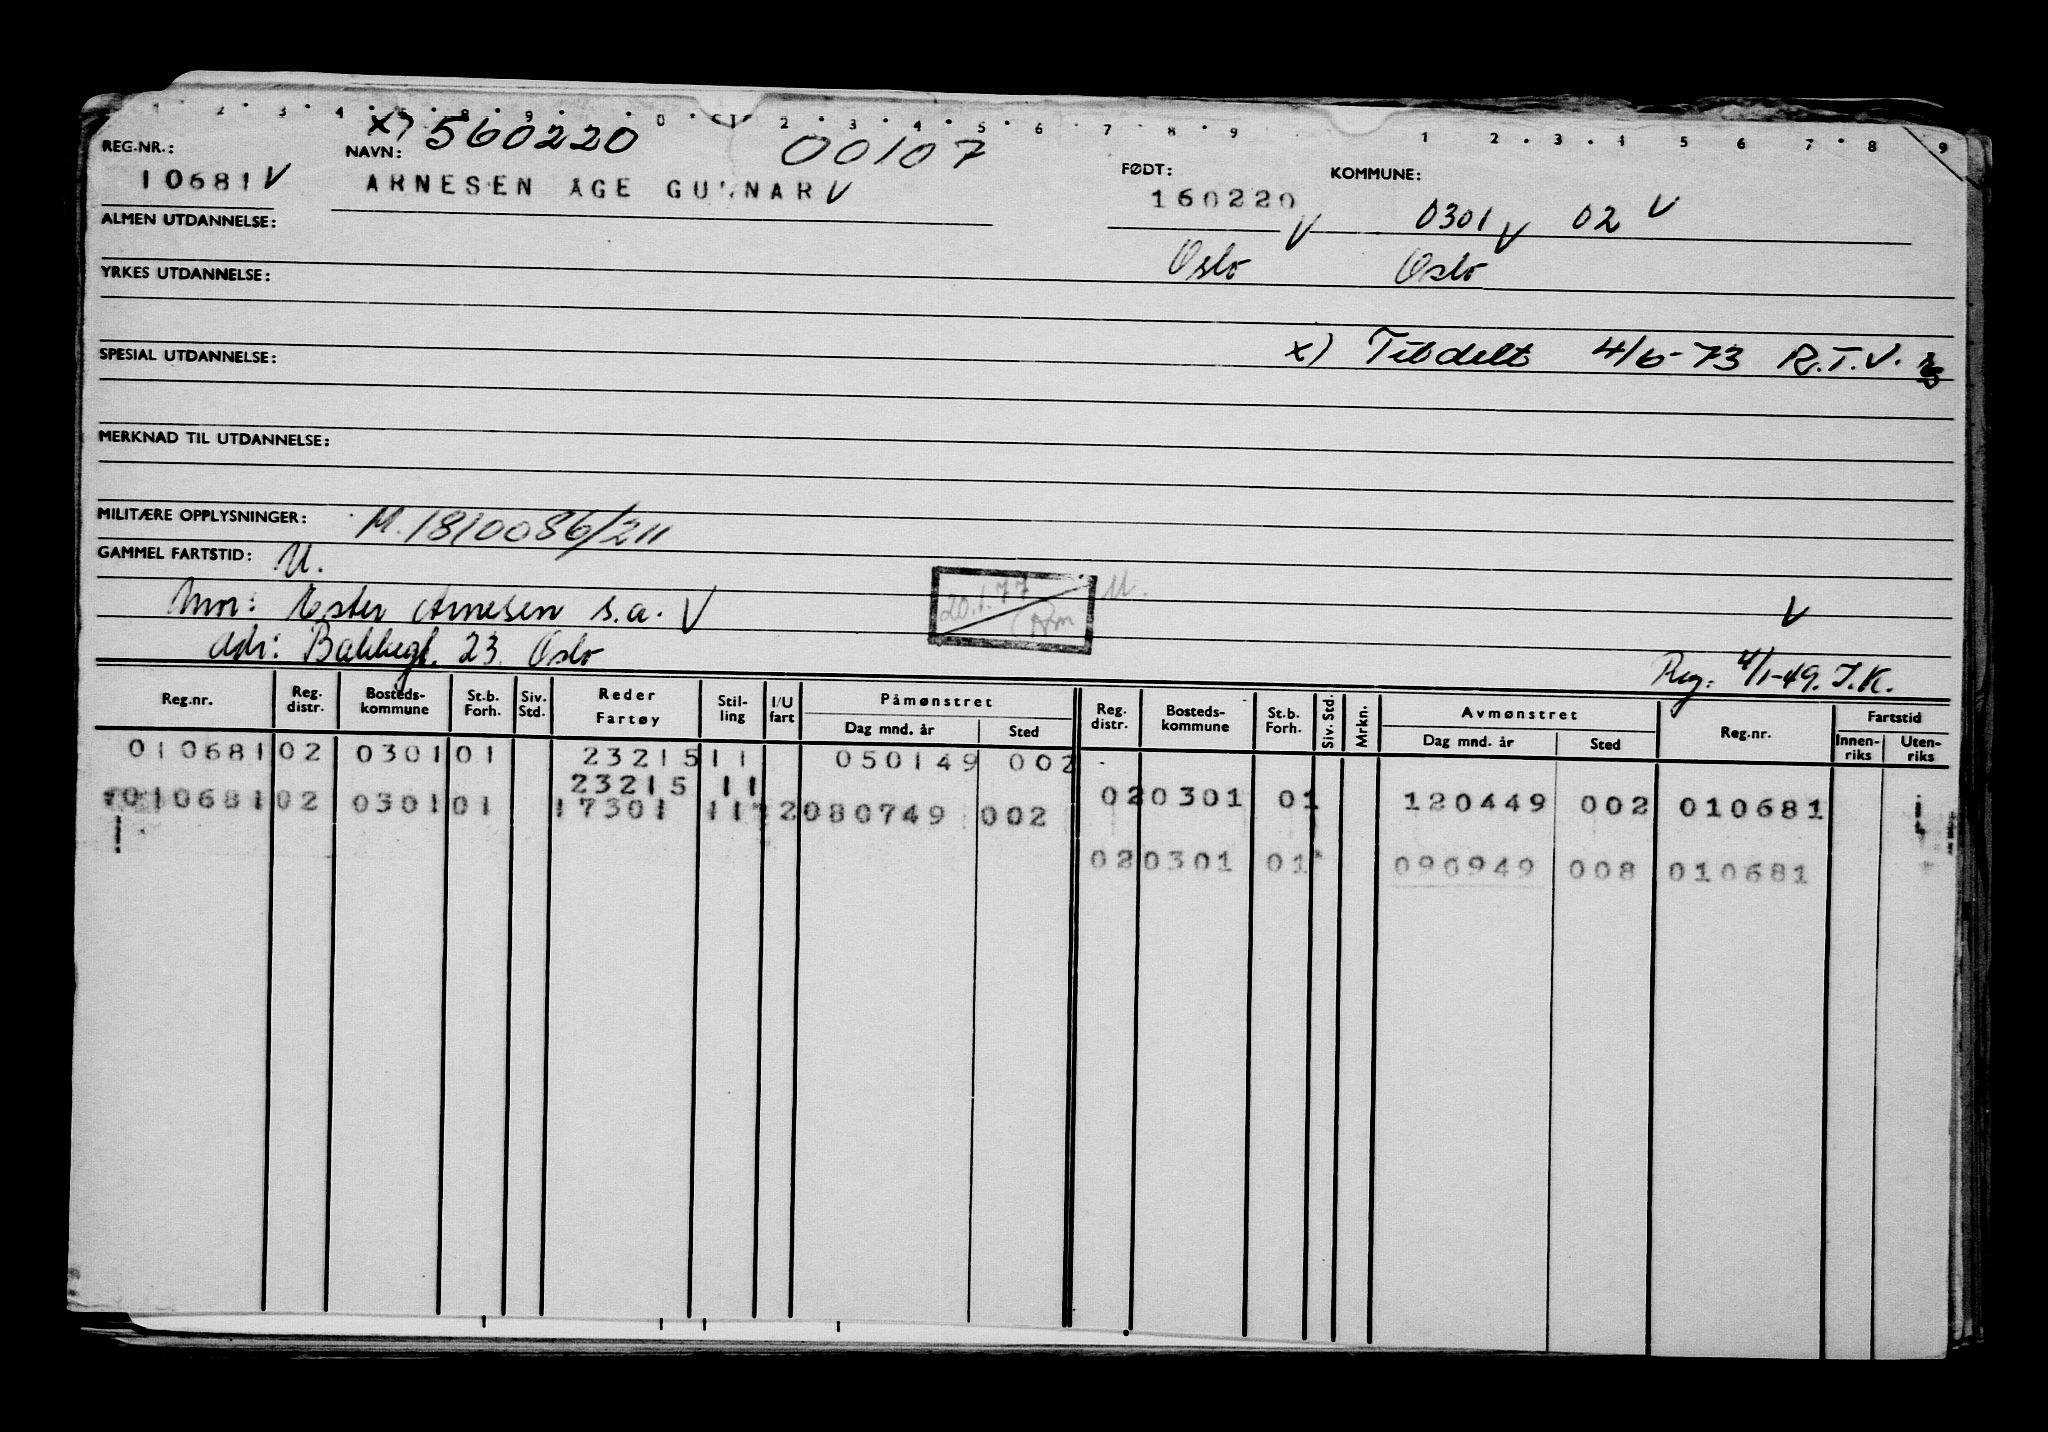 1 2 3 4 5 8 9 0 2 3 4 5 6 7 8 9 1 2 3 4 5 6 7 8 9
x) 560220 00107
REG.NR.: NAVN: FØDT: KOMMUNE:
10681 V ARNESEN ÅGE GUNNAR V 160220 V 0301 V 02 V
ALMEN UTDANNELSE: Oslo Oslo
YRKES UTDANNELSE:
x) Tildelt 4/6-73 R.T.V.
SPESIAL UTDANNELSE:
MERKNAD TIL UTDANNELSE:
MILITÆRE OPPLYSNINGER: M. 1810086/211
GAMMEL FARTSTID: U.
20.1.77 U.
Mor: Ester Arnesen s.a. V V
Adr: Bakkegt. 23 Oslo
Reg: 4/1-49. I.K.
Reg.nr. Reg. distr. Bosteds-kommune St.b. Forh. Siv. Std. Reder Fartøy Stil-ling I/U fart Påmønstret Dag mnd. år Sted Reg. distr. Bosteds-kommune St.b. Forh. Siv. Std. Mrkn. Avmønstret Dag mnd. år Sted Reg.nr. Fartstid Innen-riks Uten-riks
010681 02 0301 01 23215 11 050149 002
23215 11 02 0301 01 120449 002 010681
010681 02 0301 01 17301 11 2 080749 002
02 0301 01 090949 008 010681